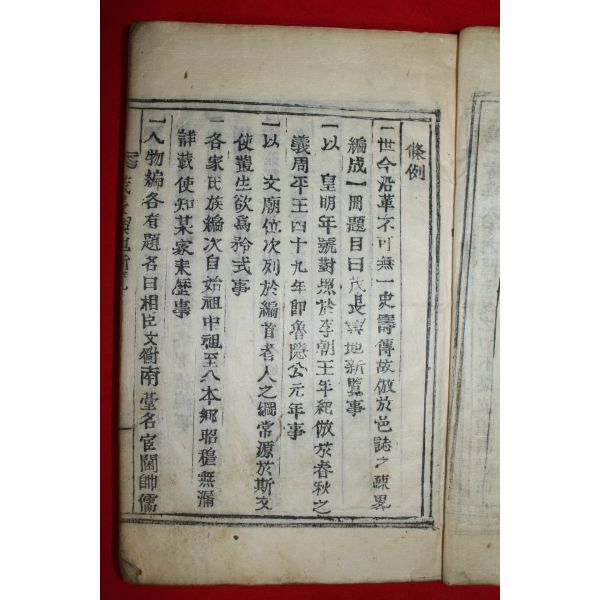 條例
一世今沿革不可無一史壽傳故倣於邑誌之疎畧
編成一冊題目曰茂長輿地新覽事
一以 皇明年號對照於李朝王年紀倣於春秋之
義周平王四十九年卽魯隱公元年事
一以 文廟位次列於編首者人之綱常源於斯文
使叢生欲爲矜式事
一各家氏族編次自始祖中祖至入本鄕昭穆無漏
詳載使知某家來歷事
一人物編各有題名曰相臣文衡南臺名宦閫帥儒
茂長輿地新覽